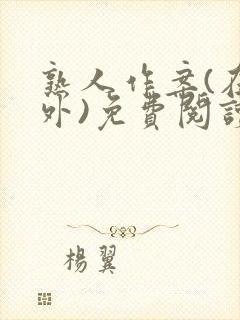 熟人作案(在
外)免費閱讀
楊翼